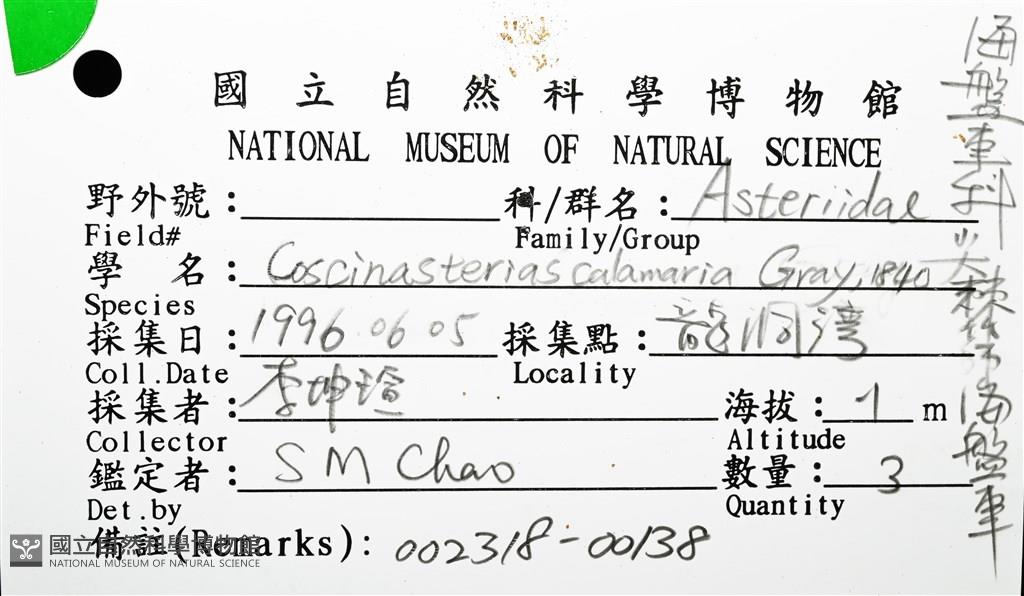 國立自然科學博物館
NATIONAL MUSEUM OF NATURAL SCIENCE
野外號:
Field#
科/群名: Asteriidae
Family/Group
學 名: Coscinasterias calamaria Gray, 1840
Species
採集日: 1996 06 05
Coll.Date
採集點: 龍洞灣
Locality
採集者: 李坤瑄
Collector
海拔: 1 m
Altitude
鑑定者: S M Chao
Det.by
數量: 3
Quantity
備註(Remarks): 002318-00138
海盤車科 尖棘 海盤車
國立自然科學博物館
NATIONAL MUSEUM OF NATURAL SCIENCE